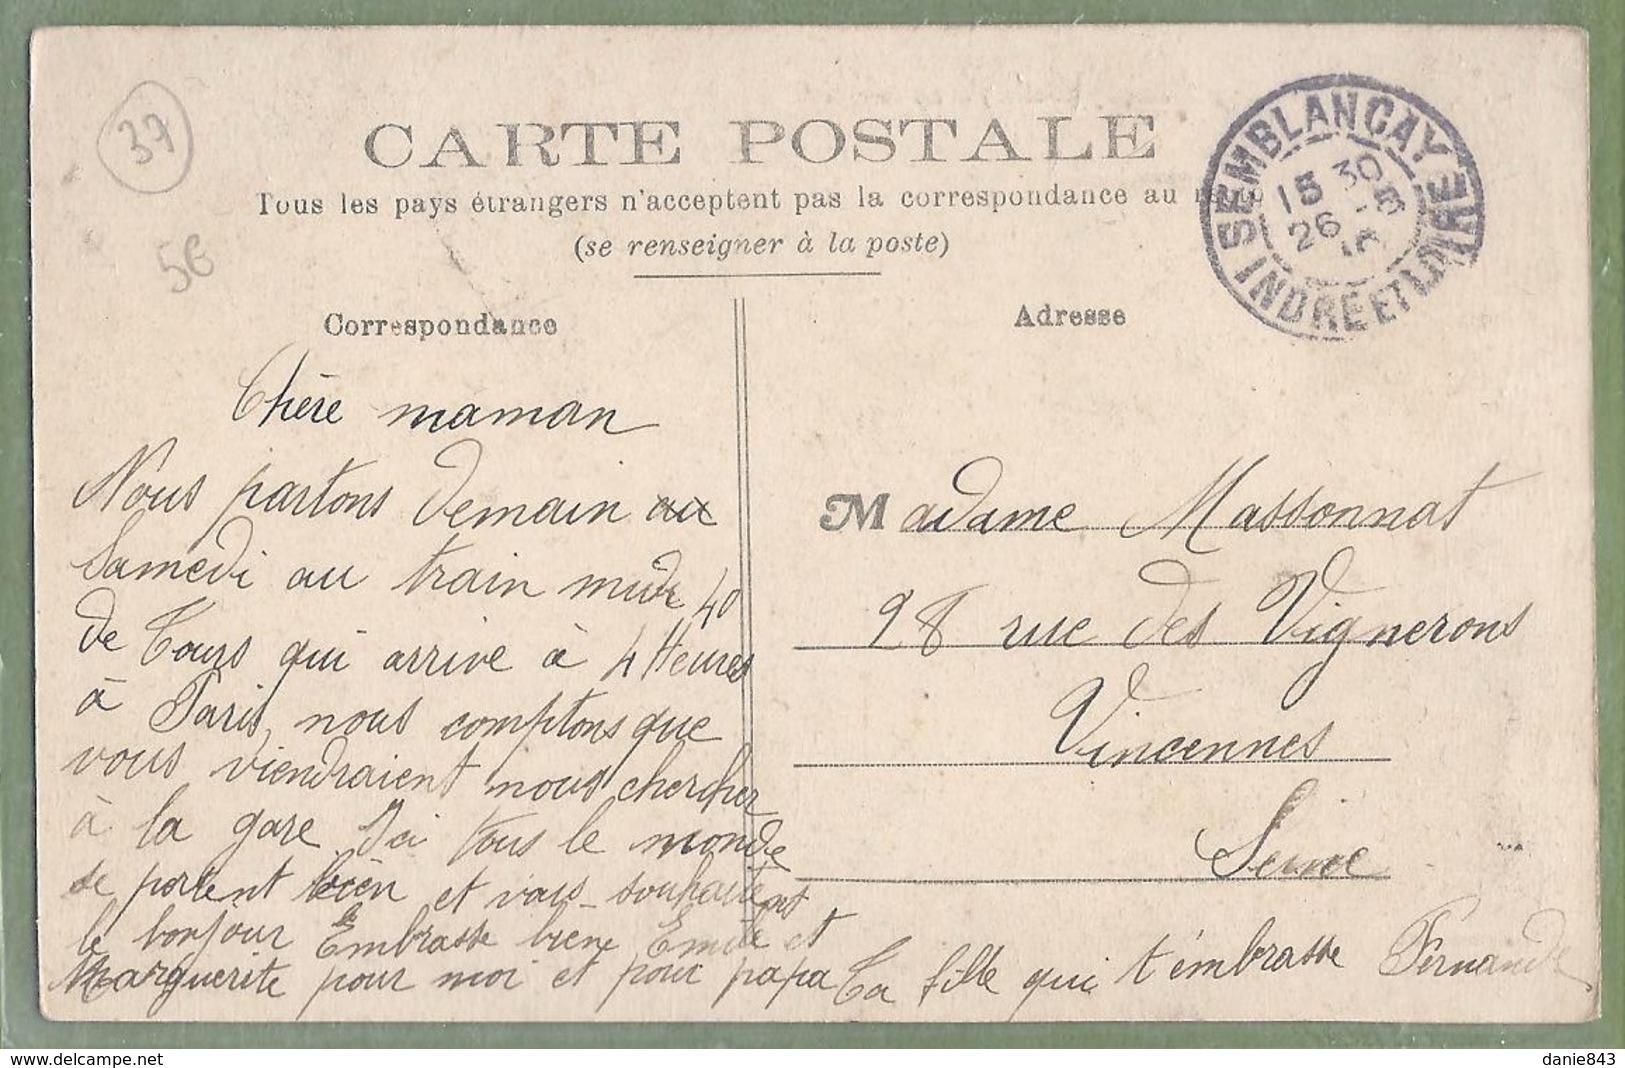 37
5€
CARTE POSTALE
Tous les pays étrangers n'acceptent pas la correspondance au
(se renseigner à la poste)
SEMBLANCAY
15 30
26
INDRE ET LOIRE
Correspondance
Chère maman
Nous partons demain au
Samedi au train midi 40
de Tours qui arrive à 4 Heures
à Paris, nous comptons que
vous viendraient nous chercher
à la gare Ici tous le monde
se portent bien et vous souhaitent
le bonjour Embrasse bien Emile et
Marguerite pour moi et pour papa
Ta fille qui t'embrasse Fernande
Adresse
Madame Massonnat
28 rue des Vignerons
Vincennes
Seine
delcampe.net
danie843